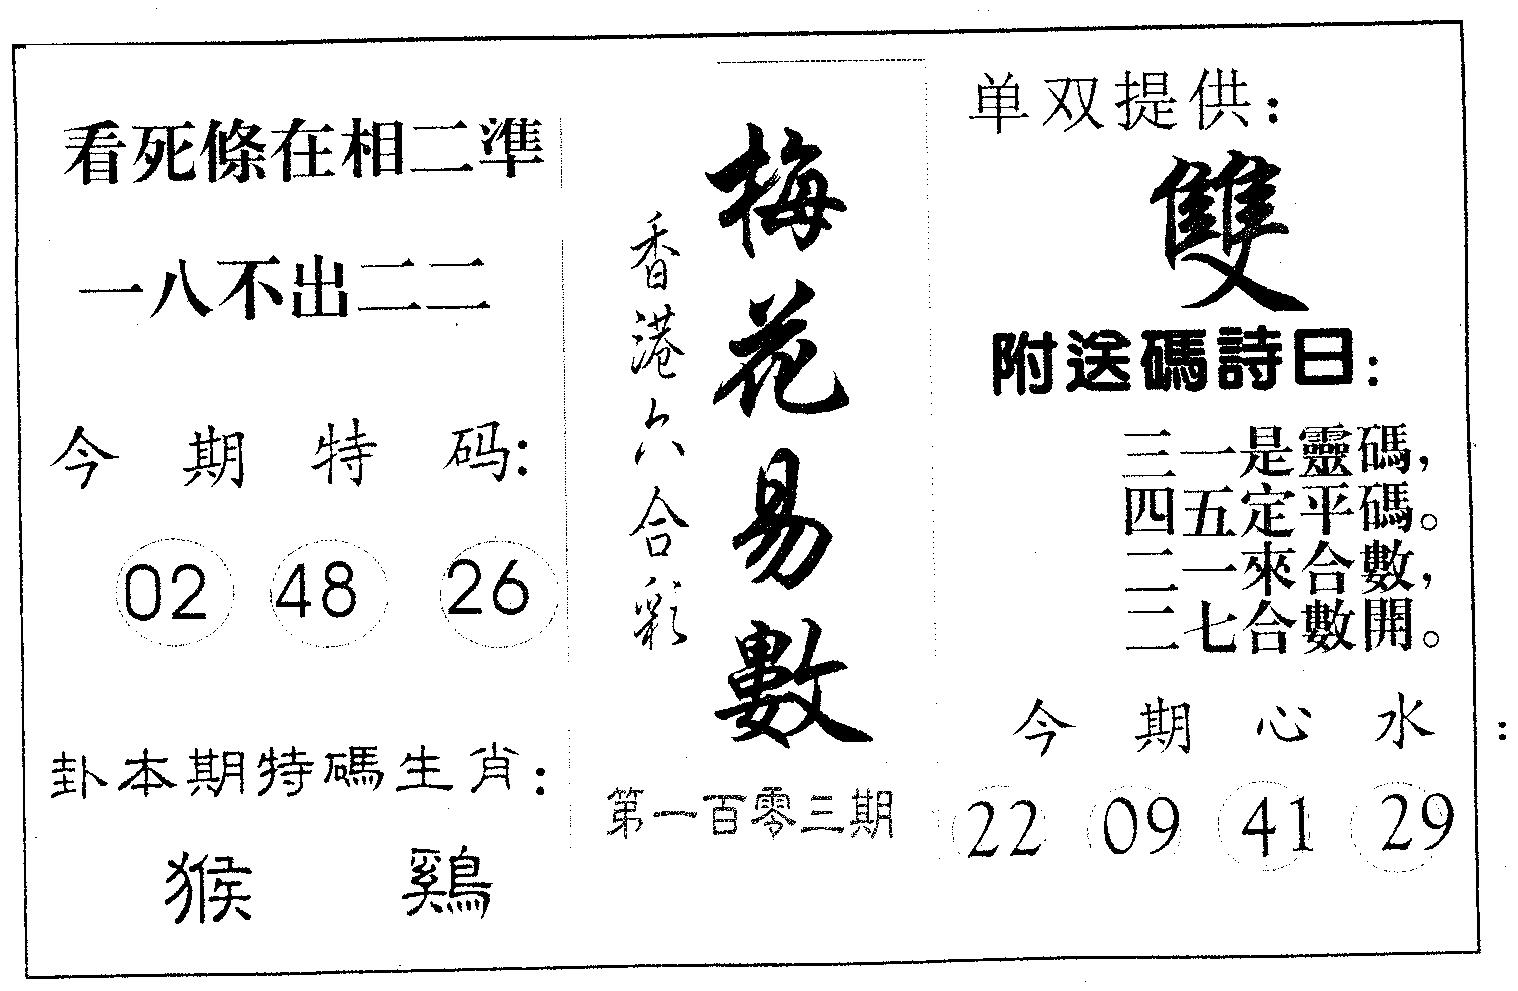 看死條在相二準
一八不出二二
今期特码:
02 48 26
卦本期特碼生肖:
猴 鷄
香港六合彩
梅花易數
第一百零三期
单双提供:
雙
附送碼詩曰:
三一是靈碼，
四五定平碼。
二一來合數，
二七合數開。
今期心水:
22 09 41 29